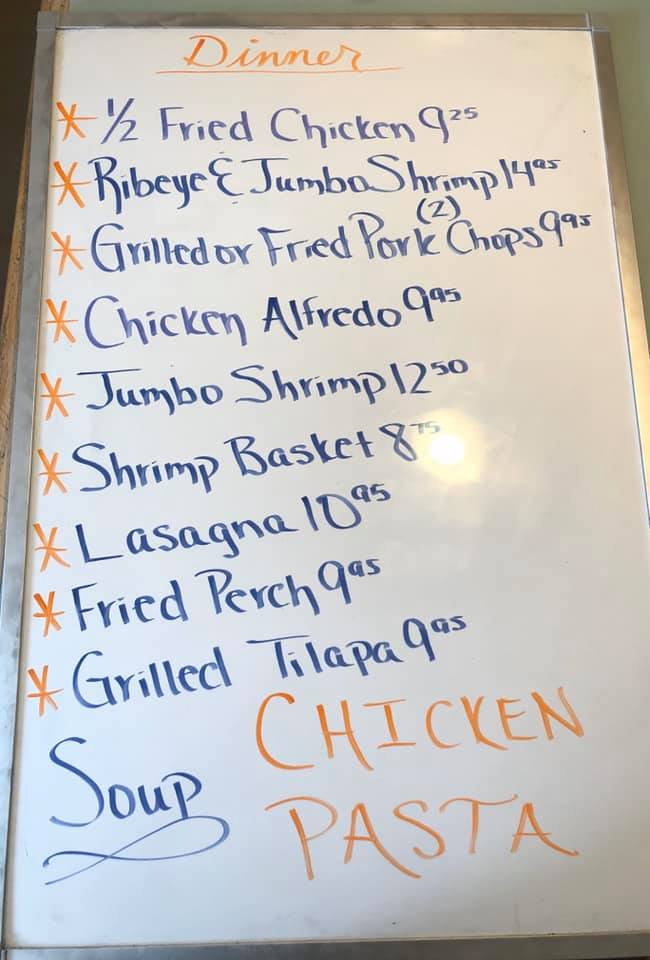 Dinner
* 1/2 Fried Chicken 9.25
* Ribeye & Jumbo Shrimp 14.95
* Grilled or Fried Pork (2) Chops 9.95
* Chicken Alfredo 9.95
* Jumbo Shrimp 12.50
* Shrimp Basket 8.75
* Lasagna 10.95
* Fried Perch 9.95
* Grilled Tilapa 9.95
Soup CHICKEN
PASTA